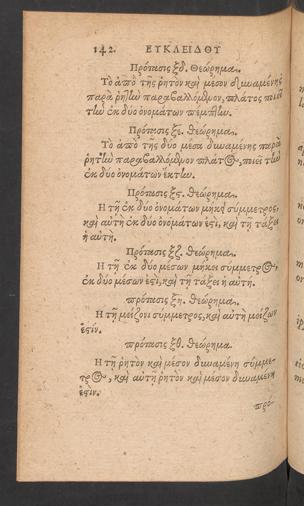 142. ΕΥΚΛΕΙΔΟΥ
Πρότασις ξδ. Θεώρημα.
Τὸ ἀπὸ τῆς ῥητὸν καὶ μέσον δυναμένης
παρὰ ῥητὴν παραβαλλόμενον, πλάτος ποιεῖ
τὴν ἐκ δύο ὀνομάτων πέμπτην.
Πρότασις ξε. θεώρημα.
Τὸ ἀπὸ τῆς δύο μέσα δυναμένης παρὰ
ῥητὴν παραβαλλόμενον πλάτος, ποιεῖ τὴν
ἐκ δύο ὀνομάτων ἕκτην.
Πρότασις ξς. θεώρημα.
Ἡ τῇ ἐκ δύο ὀνομάτων μήκει σύμμετρος,
καὶ αὐτὴ ἐκ δύο ὀνομάτων ἐστὶ, καὶ τῇ τάξει
ἡ αὐτή.
Πρότασις ξζ. θεώρημα.
Ἡ τῇ ἐκ δύο μέσων μήκει σύμμετρος,
ἐκ δύο μέσων ἐστὶ, καὶ τῇ τάξει ἡ αὐτή.
πρότασις ξη. θεώρημα.
Ἡ τῇ μείζονι σύμμετρος, καὶ αὐτὴ μείζων
ἐστίν.
πρότασις ξθ. θεώρημα.
Ἡ τῇ ῥητὸν καὶ μέσον δυναμένη σύμμε-
τρος, καὶ αὐτὴ ῥητὸν καὶ μέσον δυναμένη
ἐστίν.
πρό-